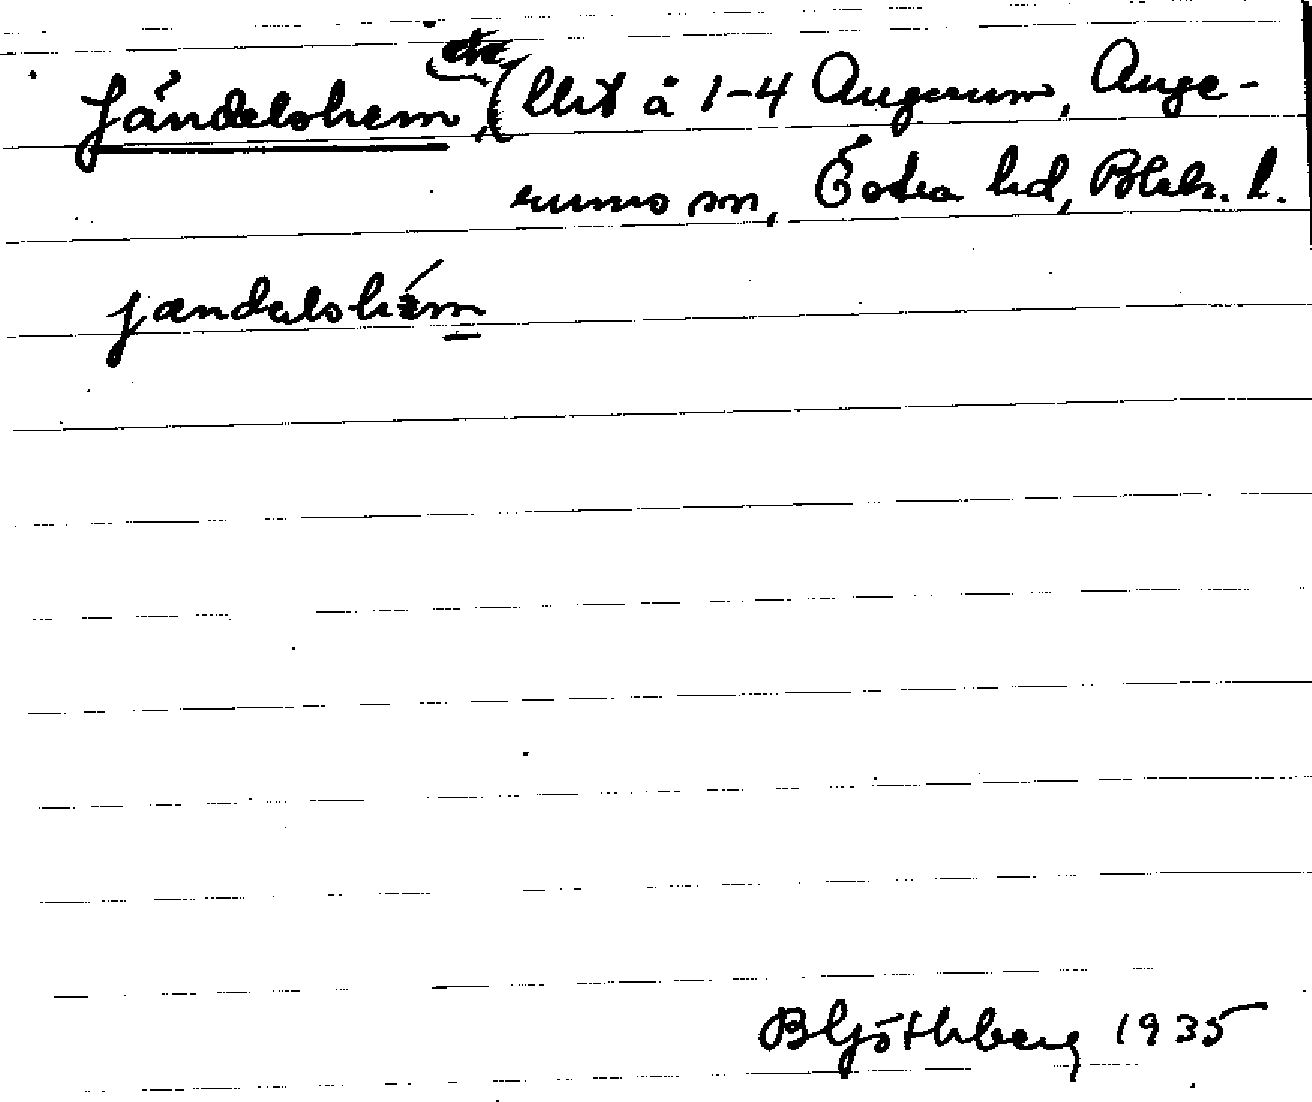 Jändelshem, (lht å 1-4 Augerum, Auge-
rums sn, Östra hd, Blek. l.
jandalshém
B Götlberg 1935